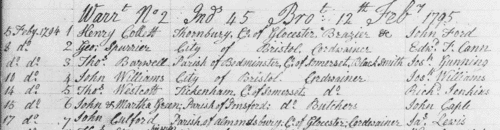 Warr.t No 2 Ind.s 45 Bro.t 12.th Feb.y 1795
5 Feby. 1794 1 Henry Collett Thornbury, C.o of Glocester Brazier &c John Ford
8 d.o 2 Geo. Spurrier City of Bristol Cordwainer Edw.d T. Cann
d.o d.o 3 Tho.s Barwell Parish of Bedminster, C.o of Somerset, Black Smith Jos.h Gunning
10 d.o 4 John Williams City of Bristol Cordwainer Jos.h Williams
14 d.o 5 Tho.s Westcott Tickenham, C.o of Somerset d.o Rich.d Jenkins
15 d.o 6 John & Martha Green, Parish of d.o Butchers John Caple
17 d.o 7 John Parish of Almondsbury, C.o of Glocester, Cordwainer Ja.s Lewis